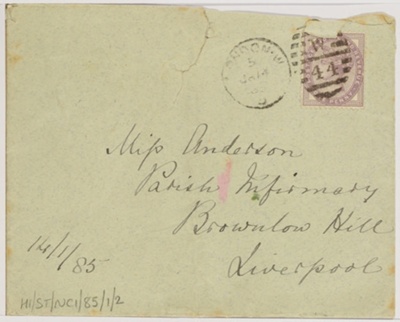 LONDON·W
5
JA 14
W
44
Miss Anderson
Parish Infirmary
Brownlow Hill
Liverpool
14/1/85
HI/ST/NC1/85/1/2